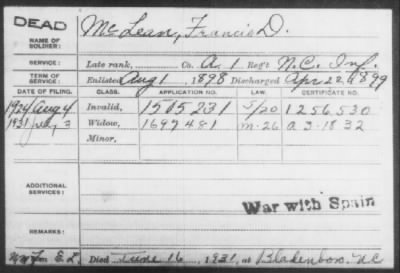 DEAD
NAME OF SOLDIER: McLean, Francis D.
SERVICE: Late rank, Co. A, 1 Reg't N.C. Inf.
TERM OF SERVICE: Enlisted Aug 1, 1898 Discharged Apr 22, 1899
DATE OF FILING. CLASS. APPLICATION NO. LAW. CERTIFICATE NO.
1924 Aug 4 Invalid, 1505231 5/20 1256530
1931 July 3 Widow, 1697481 M-26 A 3-18 32
Minor,
ADDITIONAL SERVICES:
War with Spain
REMARKS:
Died June 16, 1931, at Bladenboro, NC